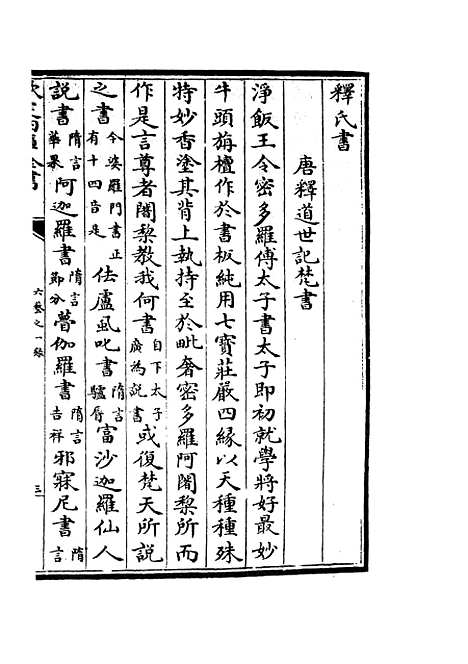 釋氏書
唐釋道世記梵書
淨飯王令密多羅傅太子書太子即初就學將好最妙
牛頭旃檀作於書板純用七寶莊嚴四緣以天種種殊
特妙香塗其背上執持至於毗奢密多羅阿闍黎所而
作是言尊者闍黎教我何書自下太子廣為說書或復梵天所說
之書今婆羅門書正有十四音是佉盧虱吒書隋言驢脣富沙迦羅仙人
說書隋言華果阿迦羅書隋言節分瞢伽羅書隋言吉祥邪寐尼書隋言
欽定四庫全書
六藝之一錄
三